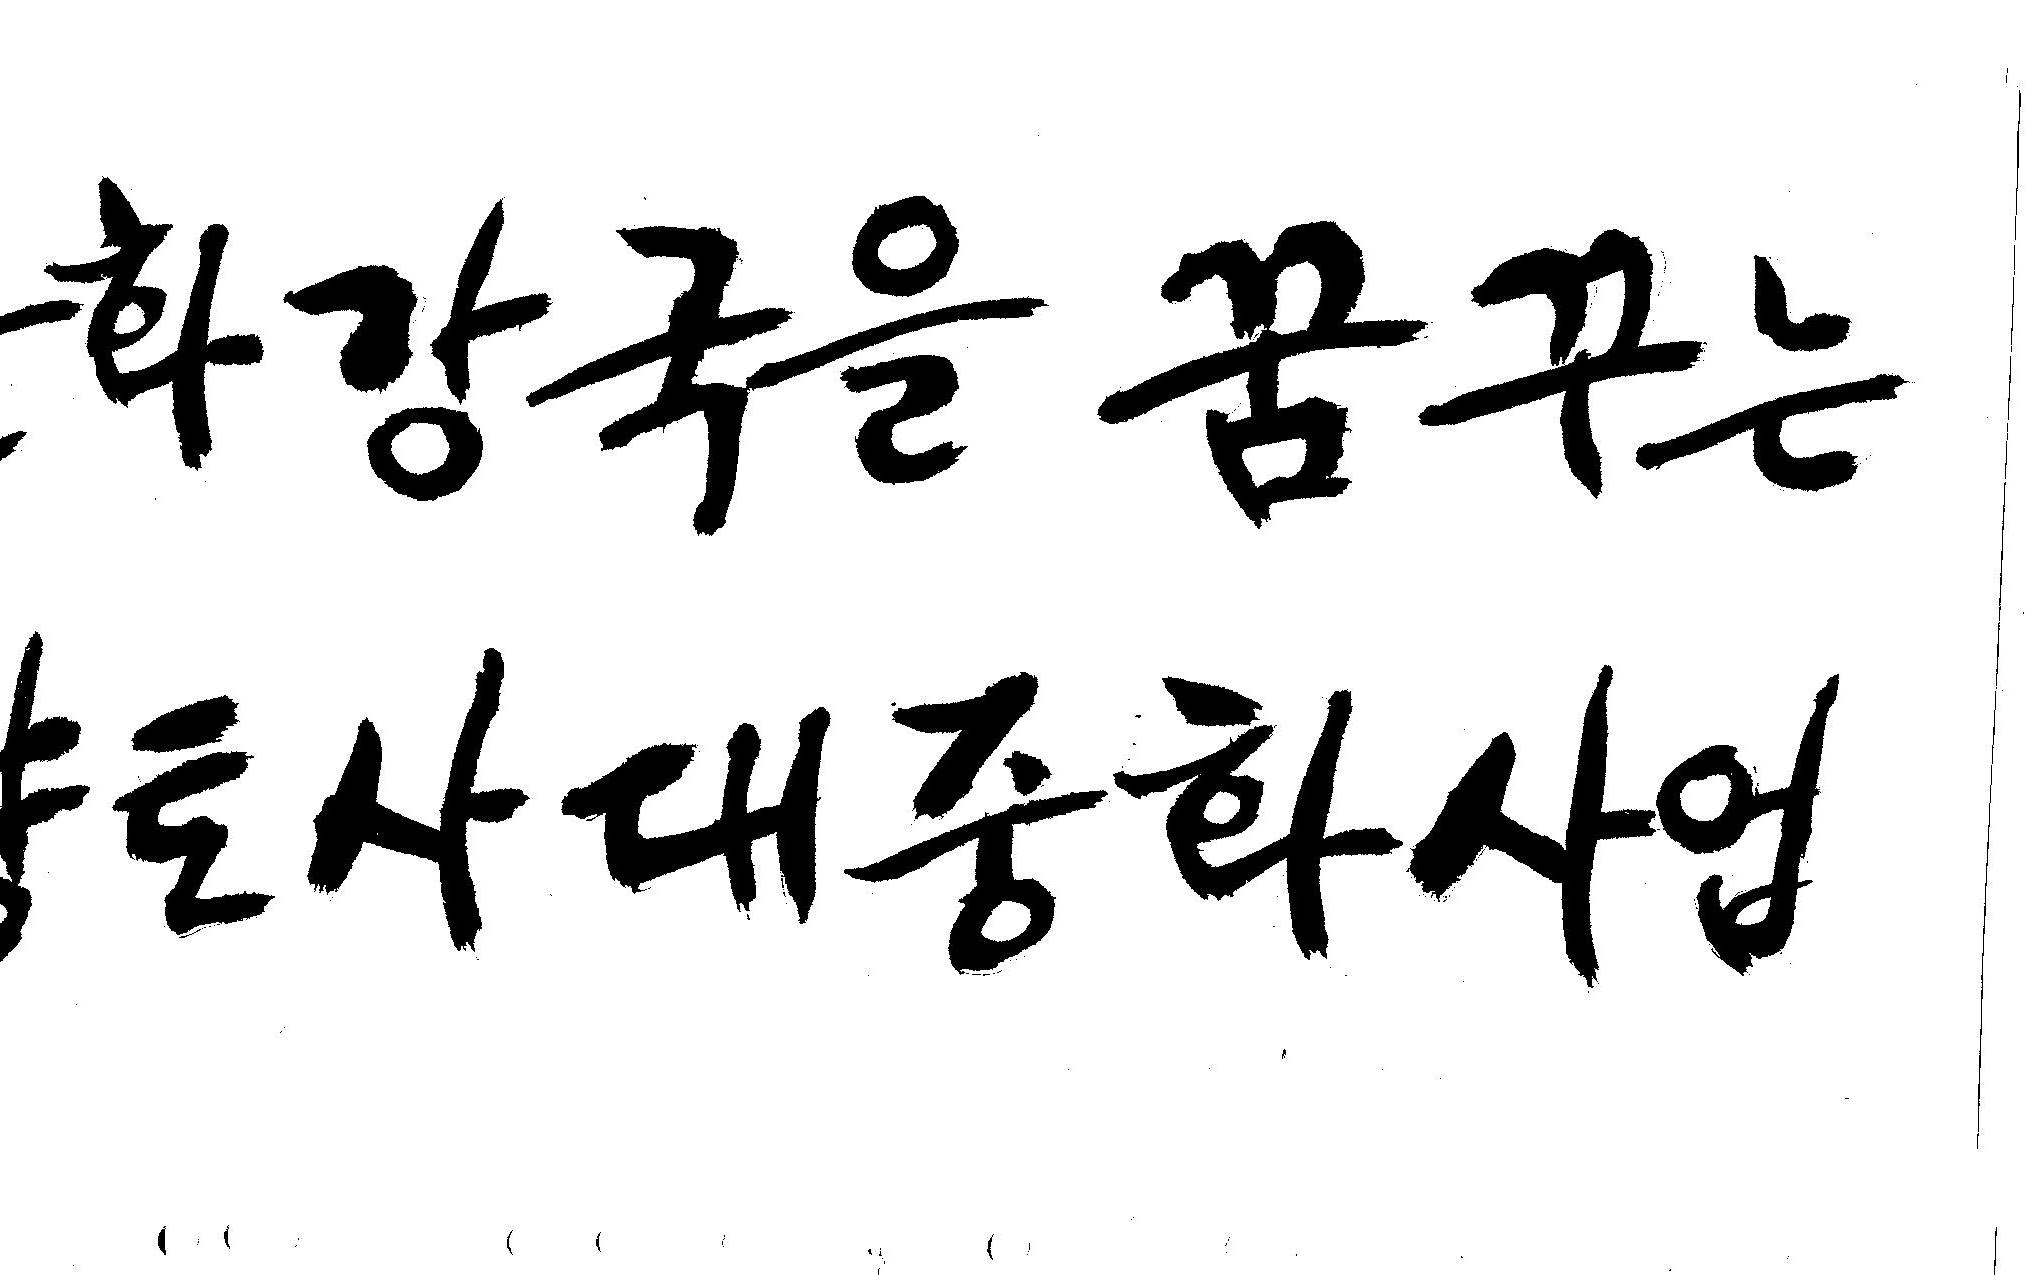 화강국을 꿈꾸는
향토사대중화사업